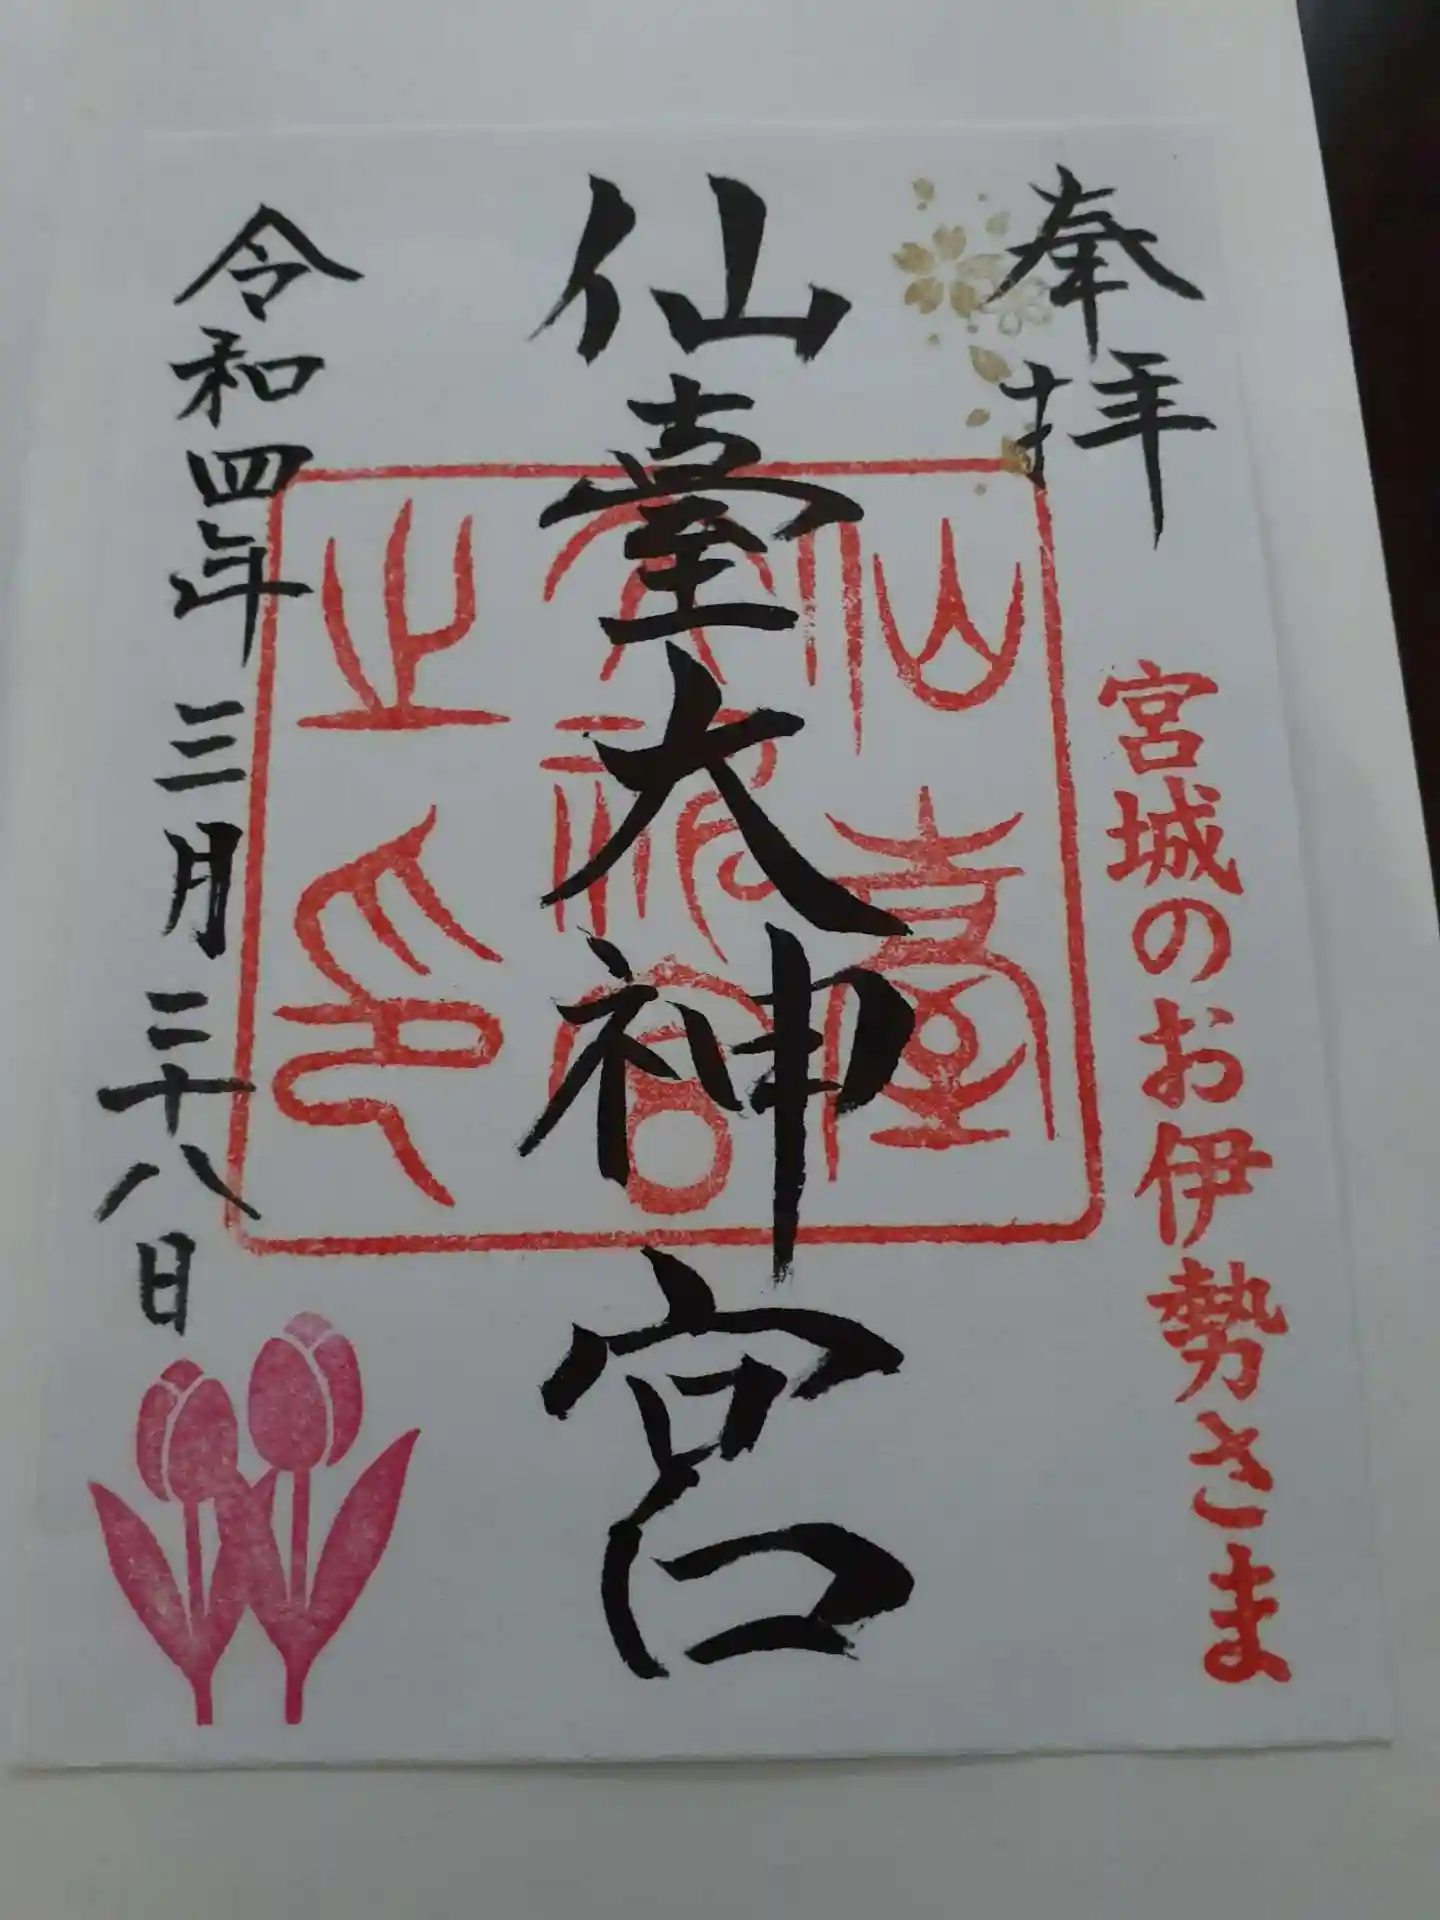 奉拝
宮城のお伊勢さま
仙臺大神宮
仙臺
大神宮
之印
令和四年三月二十八日